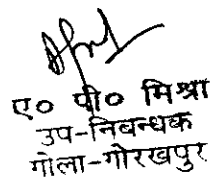 ए० पी० मिश्रा
उप-निबन्धक
गोला-गोरखपुर